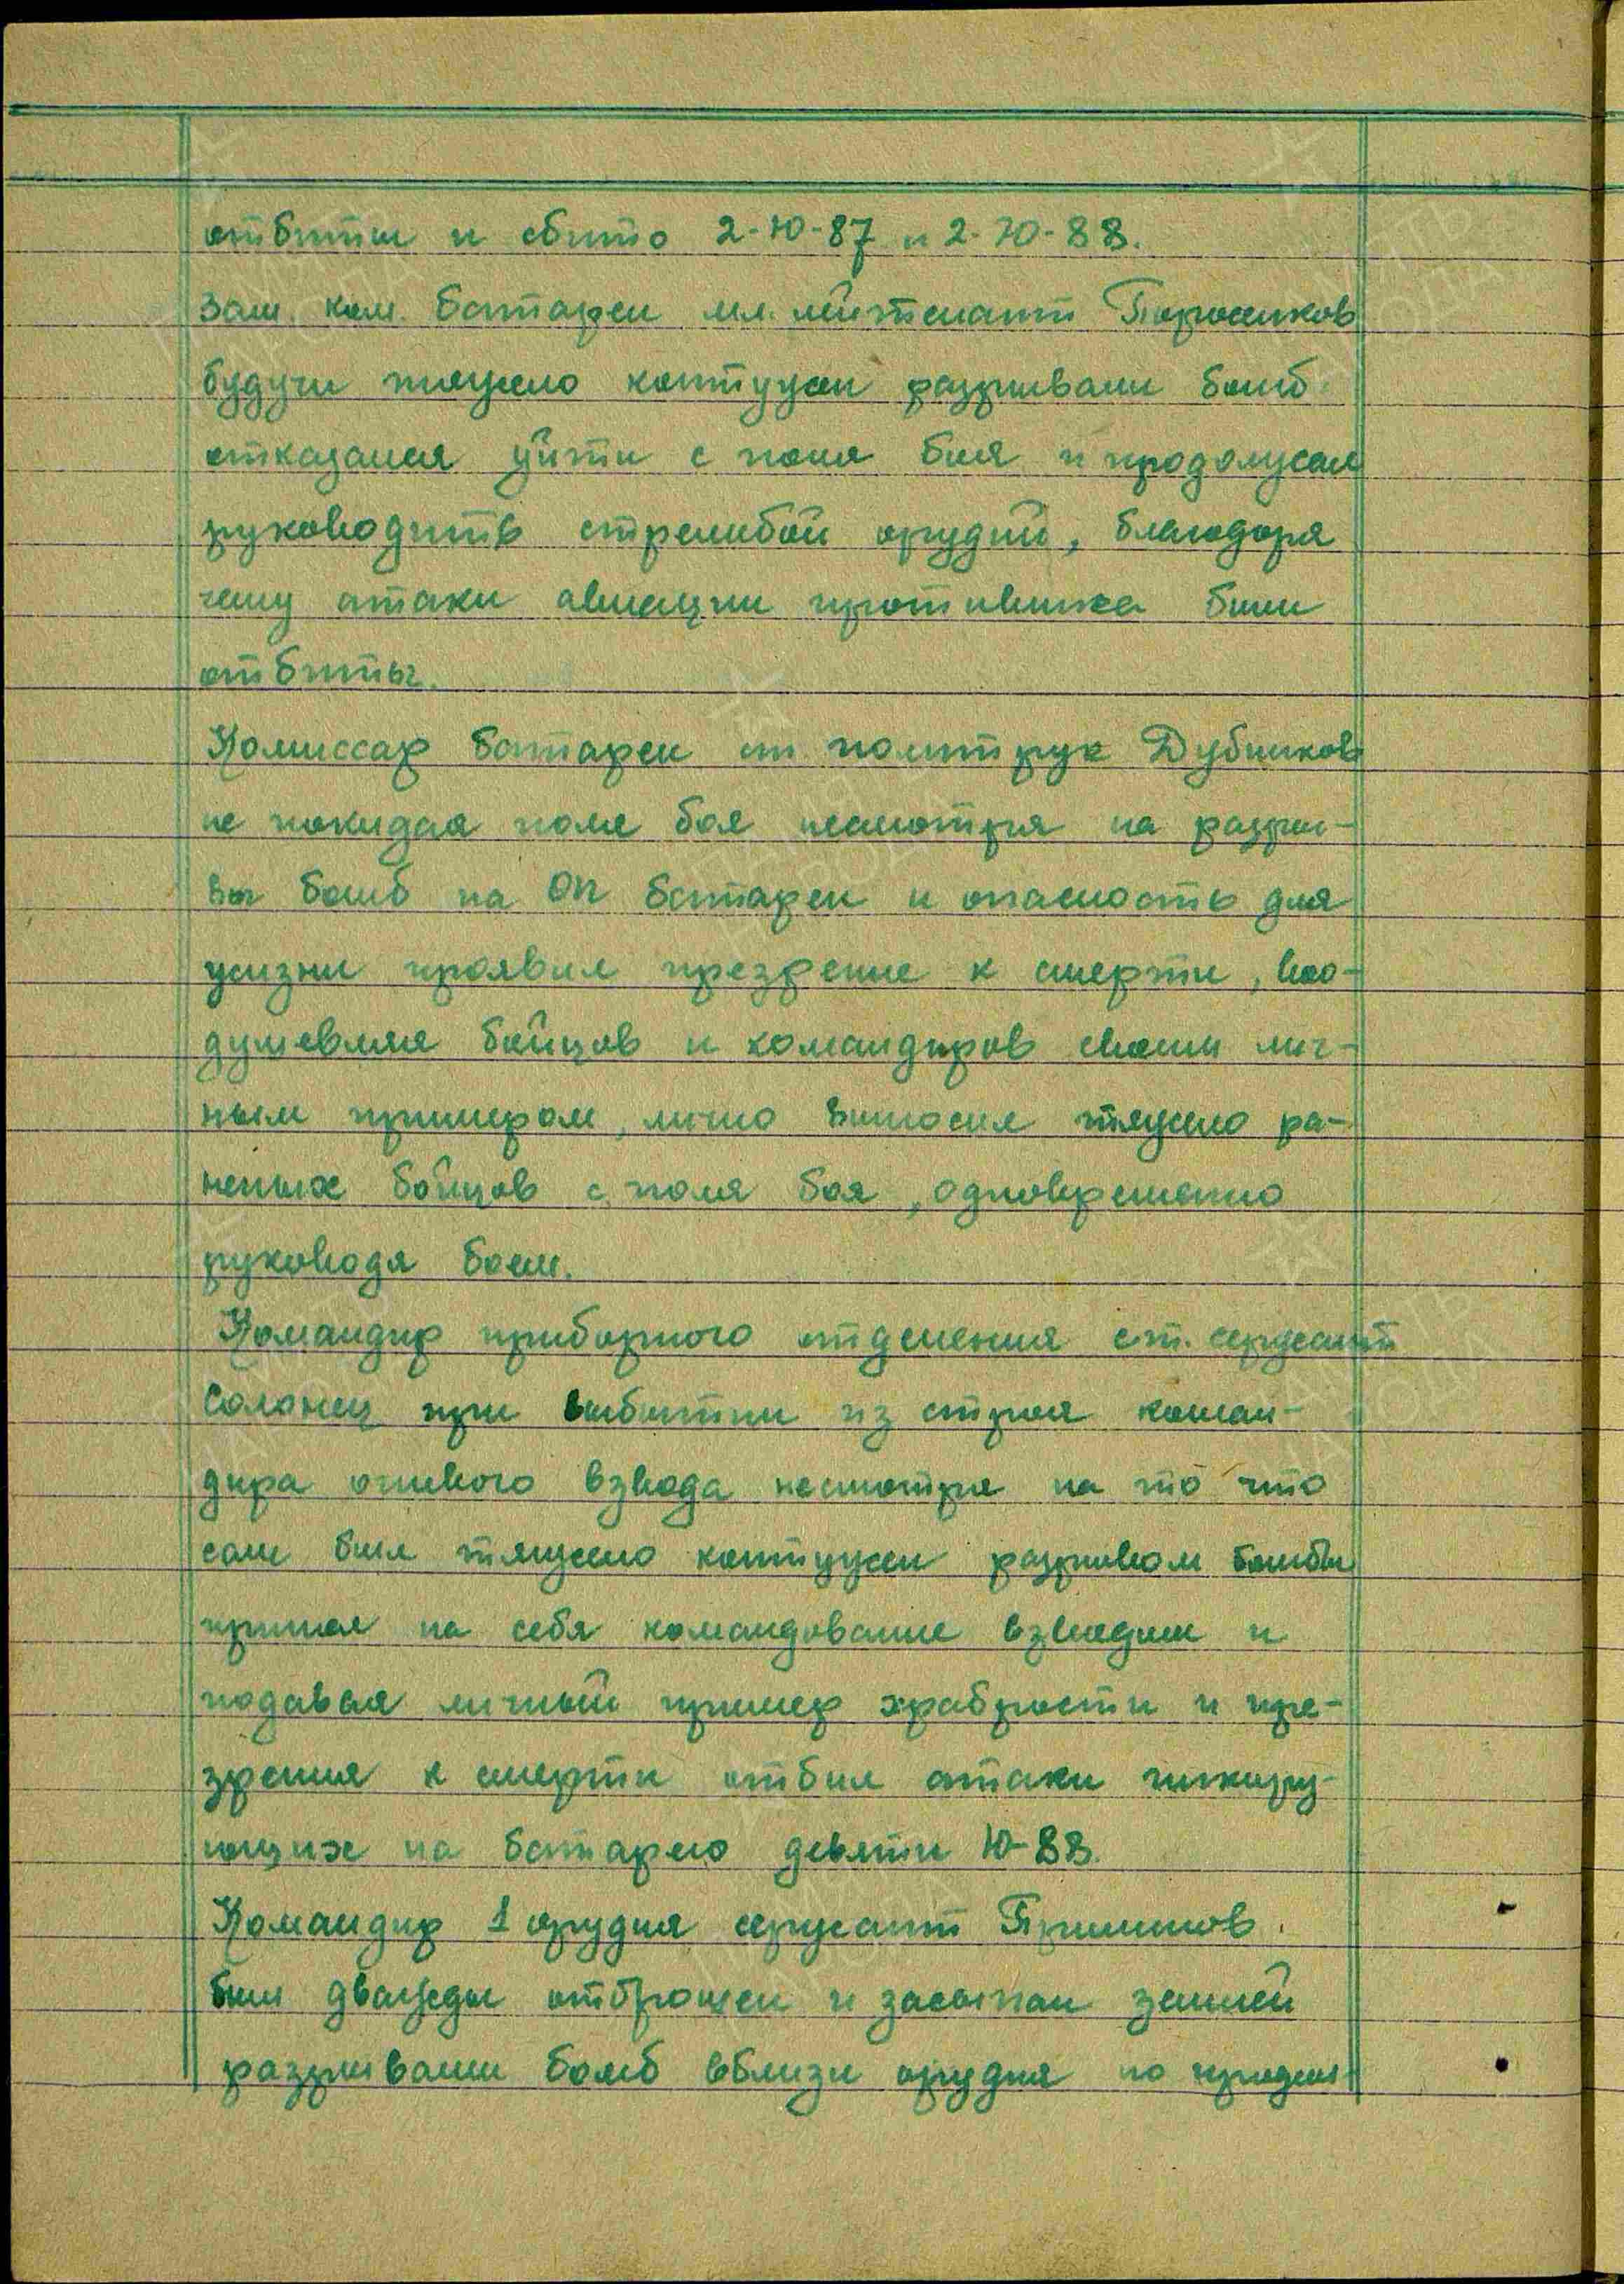 отбиты и сбито 2-Ю-87 и 2-Ю-88.
Зам. ком. батареи мл. лейтенант
будучи тяжело контужен разрывами бомб
отказался уйти с поля боя и продолжал
руководить стрельбой орудий, благодаря
чему атаки авиации противника были
отбиты.
Комиссар батареи ст политрук Дубников
не покидая поле боя несмотря на разры-
вы бомб на ОП батареи и опасность для
жизни проявил презрение к смерти, воо-
душевляя бойцов и командиров своим лич-
ным примером, лично выносил тяжело ра-
неных бойцов с поля боя, одновременно
руководя боем.
Командир приборного отделения ст. сержант
Солонец при выбытии из строя коман-
дира огневого взвода несмотря на то что
сам был тяжело контужен разрывом бомбы
принял на себя командование взводом и
подавая личный пример храбрости и пре-
зрения к смерти отбил атаки пикиру-
ющих на батарею девяти Ю-88.
Командир 1 орудия сержант
был дважды отброшен и засыпан землей
разрывами бомб вблизи орудия но продол-
ПАМЯТЬ НАРОДА
ПАМЯТЬ НАРОДА
ПАМЯТЬ НАРОДА
ПАМЯТЬ НАРОДА
ПАМЯТЬ НАРОДА
ПАМЯТЬ НАРОДА